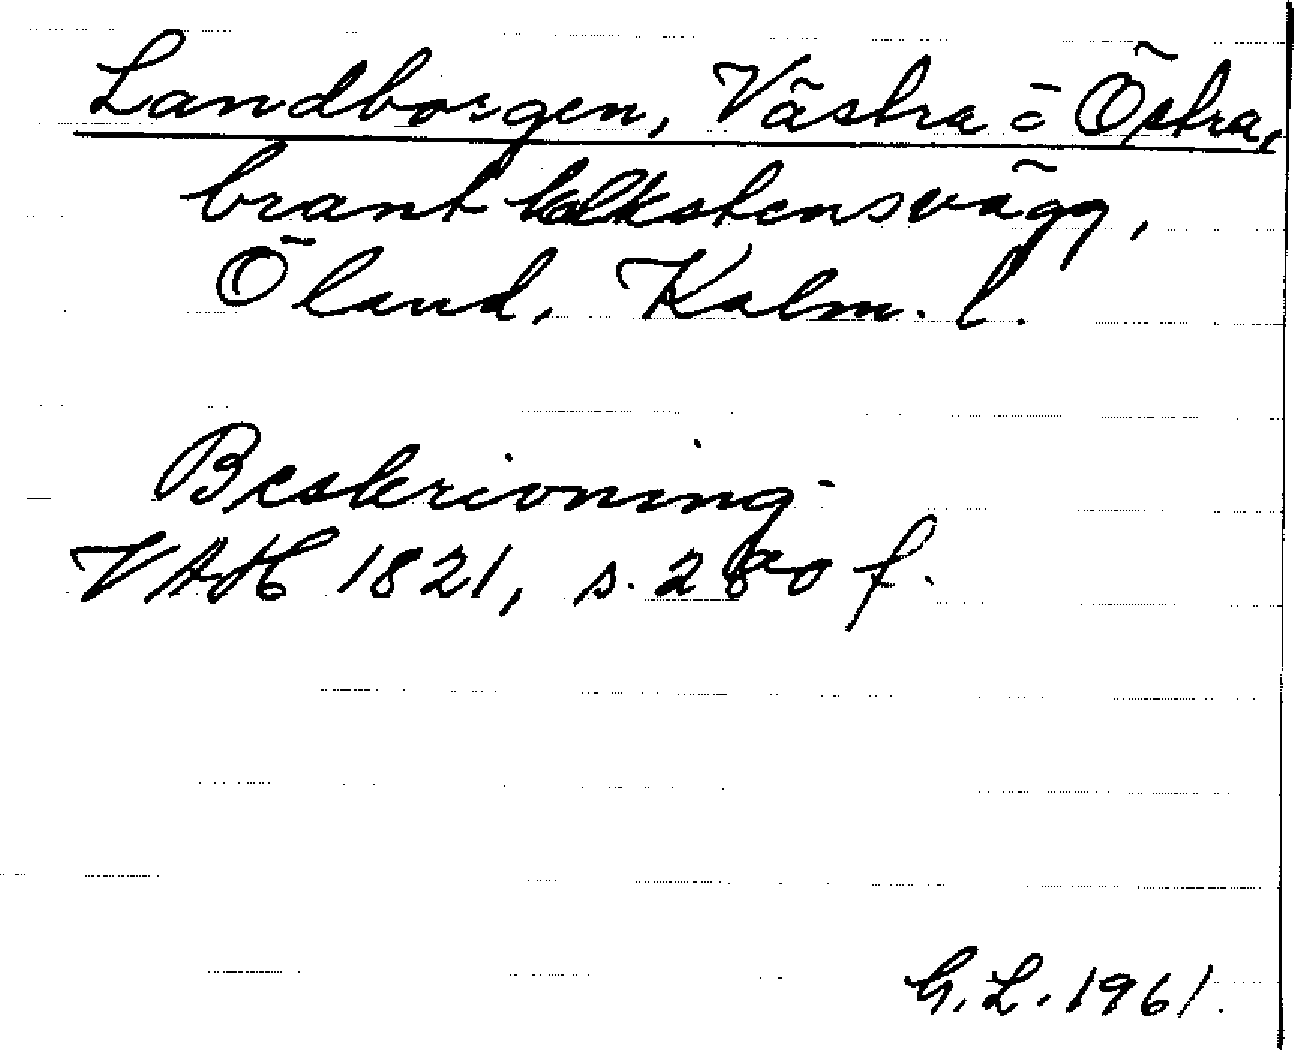 Landborgen, Västra o Östra,
brant kalkstensvägg,
Öland, Kalm. l.
Beskrivning
VAH 1821, s. 280 f.
G. L. 1961.